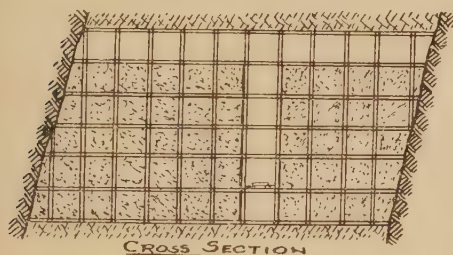 CROSS SECTION